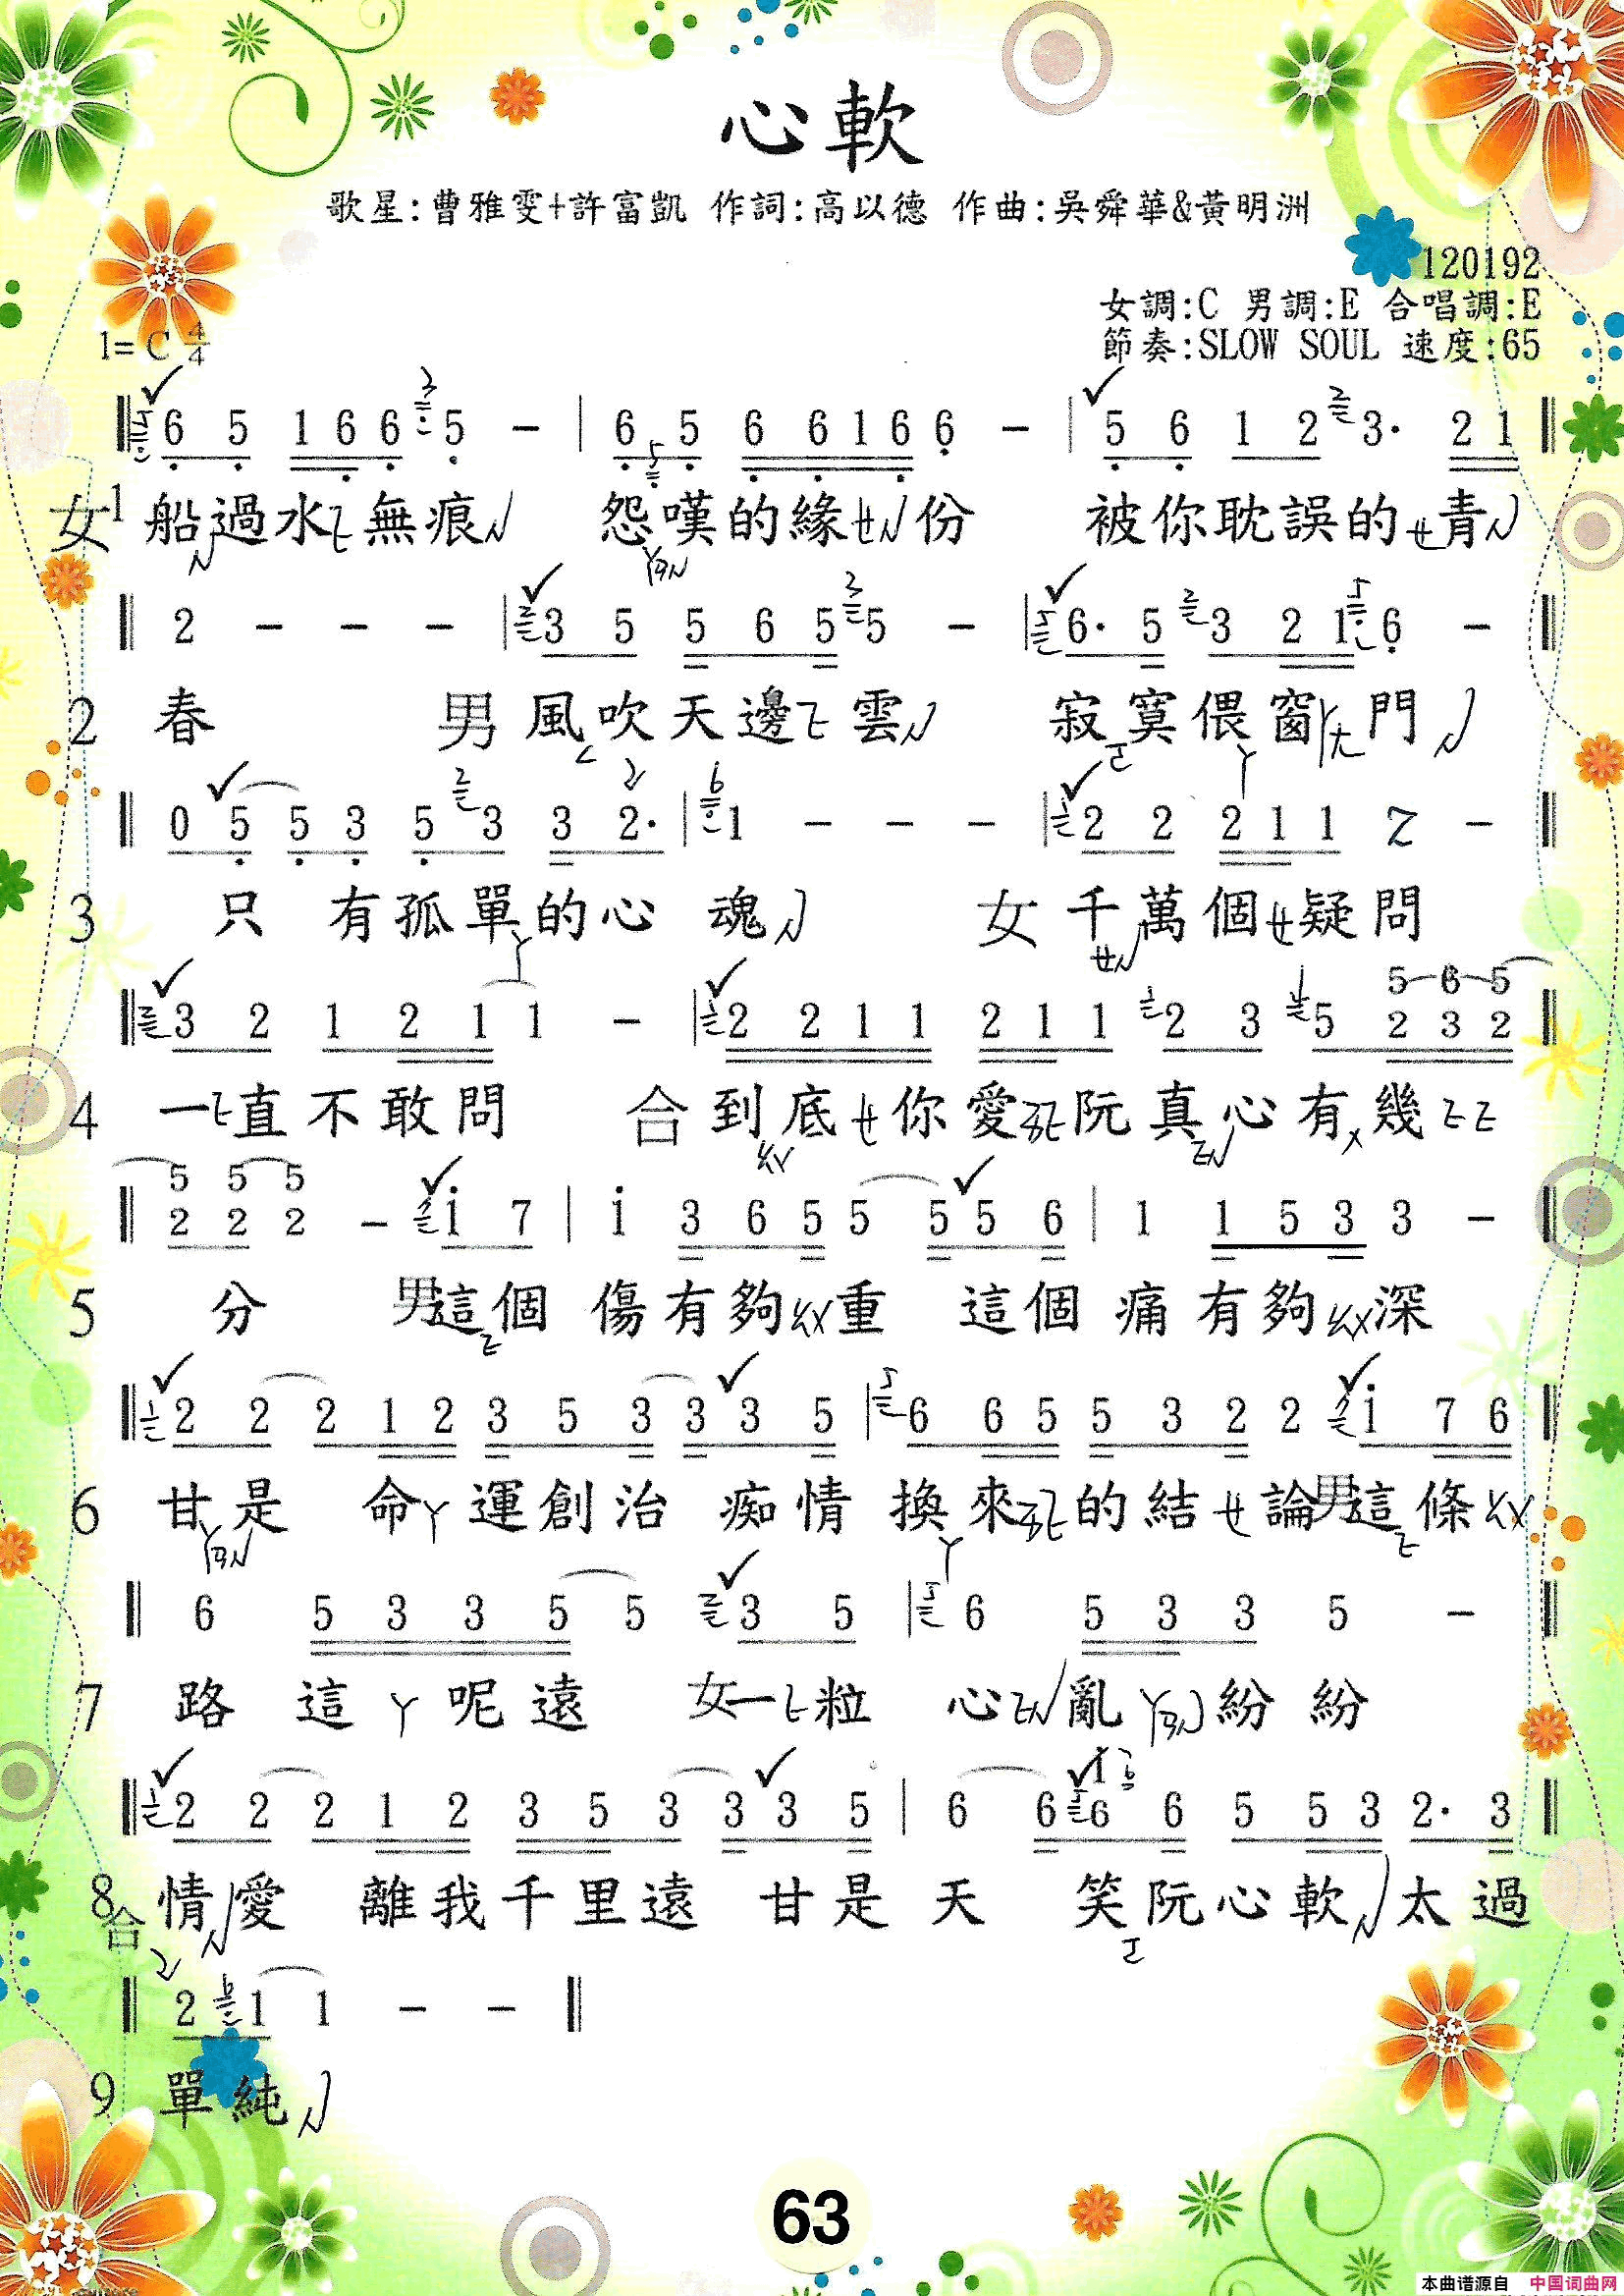 心軟
歌星:曹雅雯+許富凱 作詞:高以德 作曲:吳舜華&黃明洲
120192
女調:C 男調:E 合唱調:E
1= C 4/4 節奏:SLOW SOUL 速度:65
6 5 1 6 6 5 - | 6 5 6 6 1 6 6 - | 5 6 1 2 3· 2 1
女1 船過水無痕 怨嘆的緣份 被你耽誤的青
2 - - - | 3 5 5 6 5 5 - | 6· 5 3 2 1 6 -
2 春 男 風吹天邊雲 寂寞偎窗門
0 5 5 3 5 3 3 2· | 1 - - - | 2 2 2 1 1 2 -
3 只有孤單的心魂 女 千萬個疑問
5 6 5
3 2 1 2 1 1 - | 2 2 1 1 2 1 1 2 3 5 2 3 2
4 一直不敢問 合 到底你愛阮真心有幾
5 5 5
2 2 2 - i 7 | i 3 6 5 5 5 5 6 | 1 1 5 3 3 -
5 分 男這個傷有夠重 這個痛有夠深
2 2 2 1 2 3 5 3 3 3 5 | 6 6 5 5 3 2 2 i 7 6
6 甘是 命運創治 痴情換來的結論男這條
6 5 3 3 5 5 3 5 | 6 5 3 3 5 -
7 路這呢遠 女一粒心亂紛紛
2 2 2 1 2 3 5 3 3 3 5 | 6 6 6 6 5 5 3 2· 3
8 合 情愛 離我千里遠 甘是天 笑阮心軟太過
2 1 1 - -
9 單純
63
本曲谱源自 中国词曲网